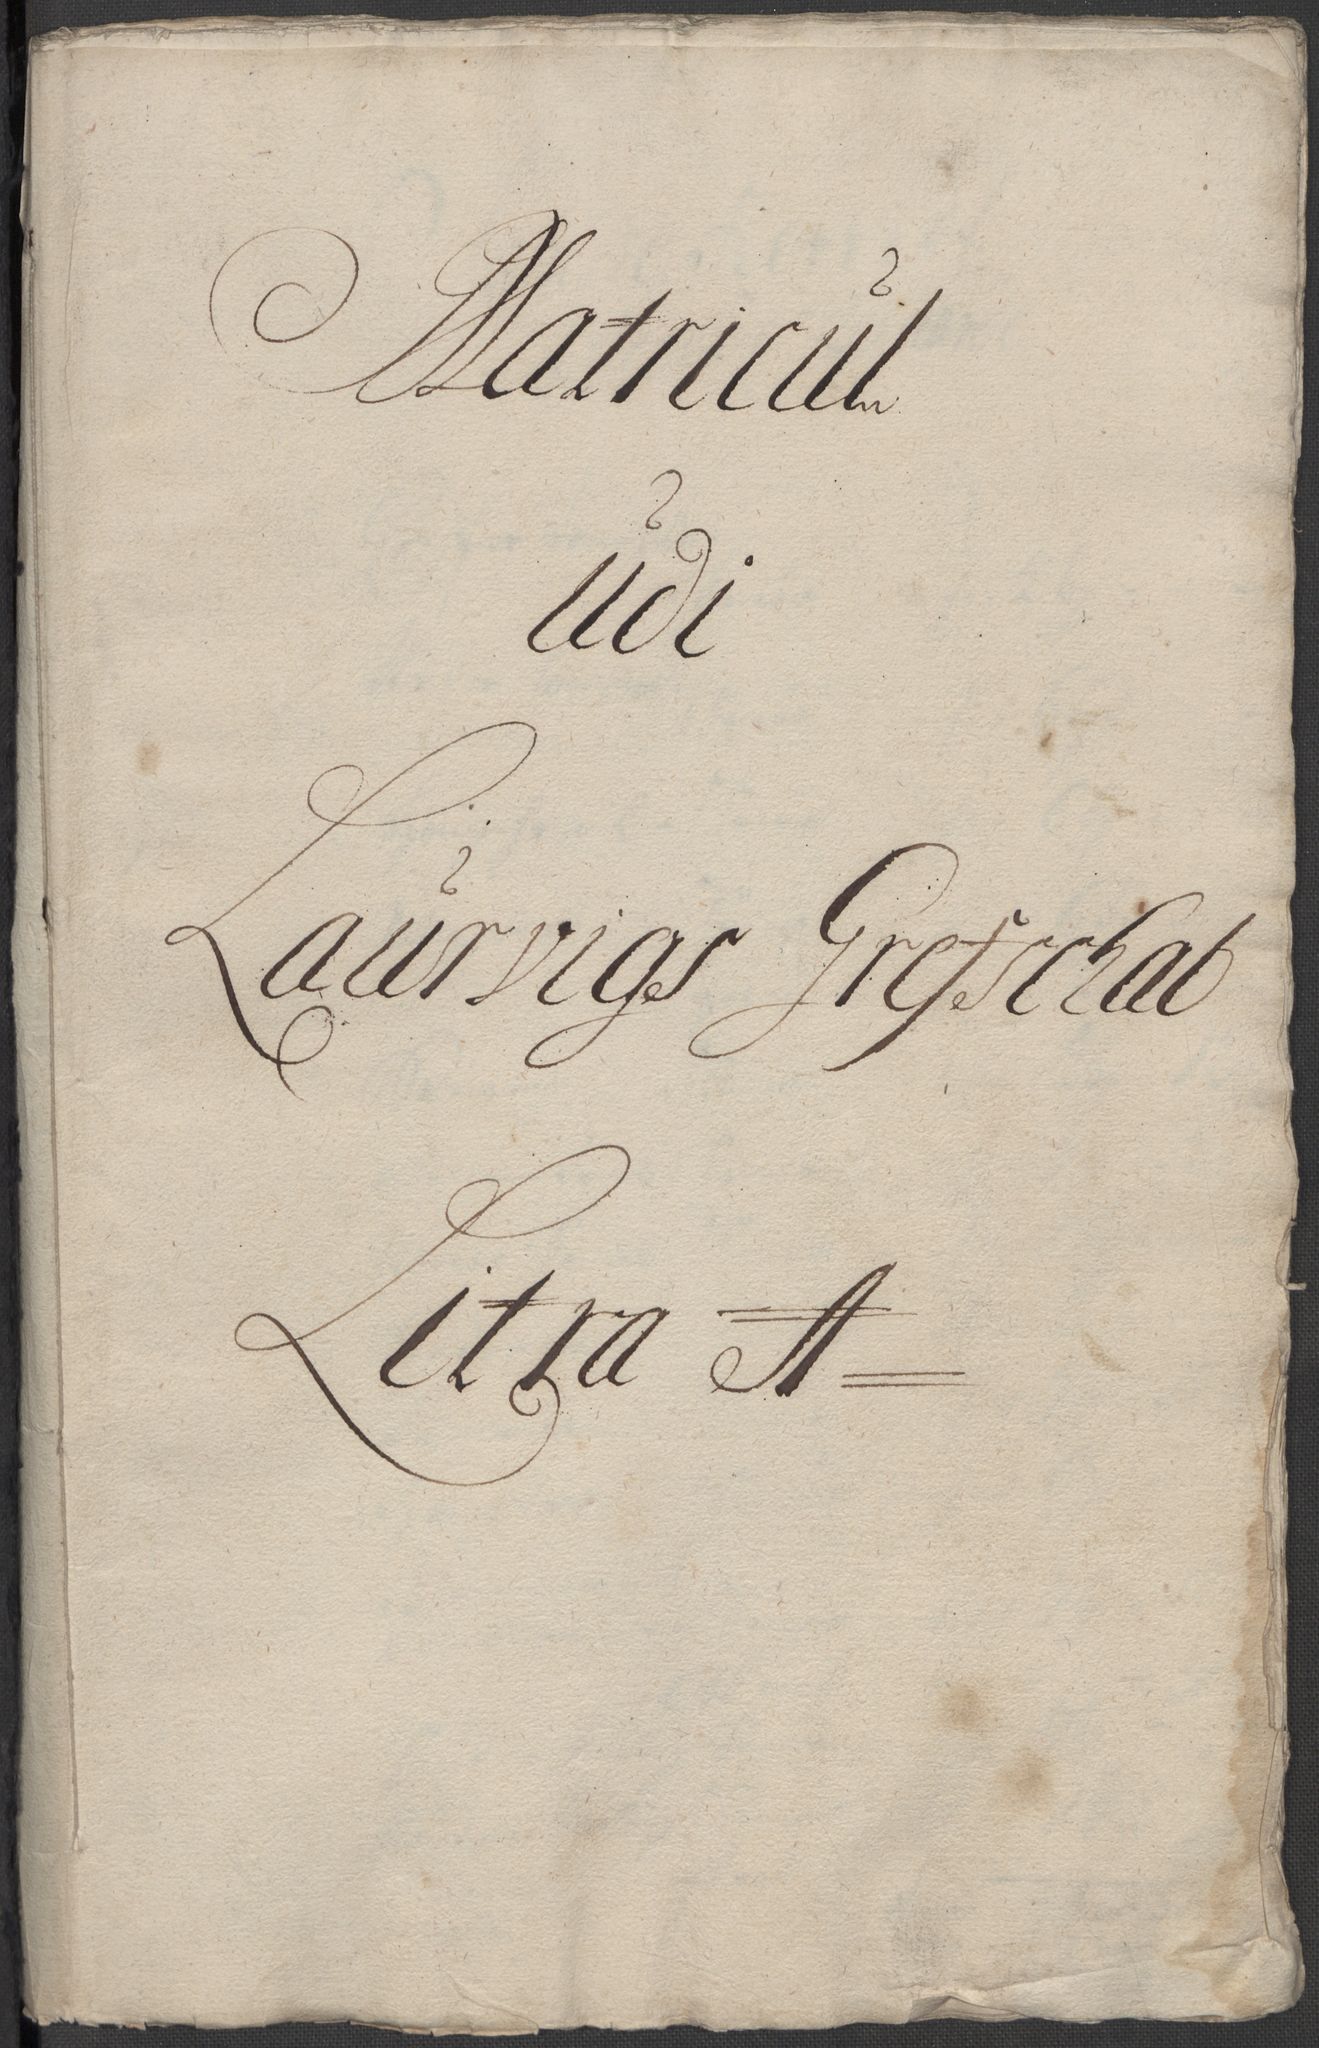 Matricul
udi
Laurvigs Grefschab
Litra A